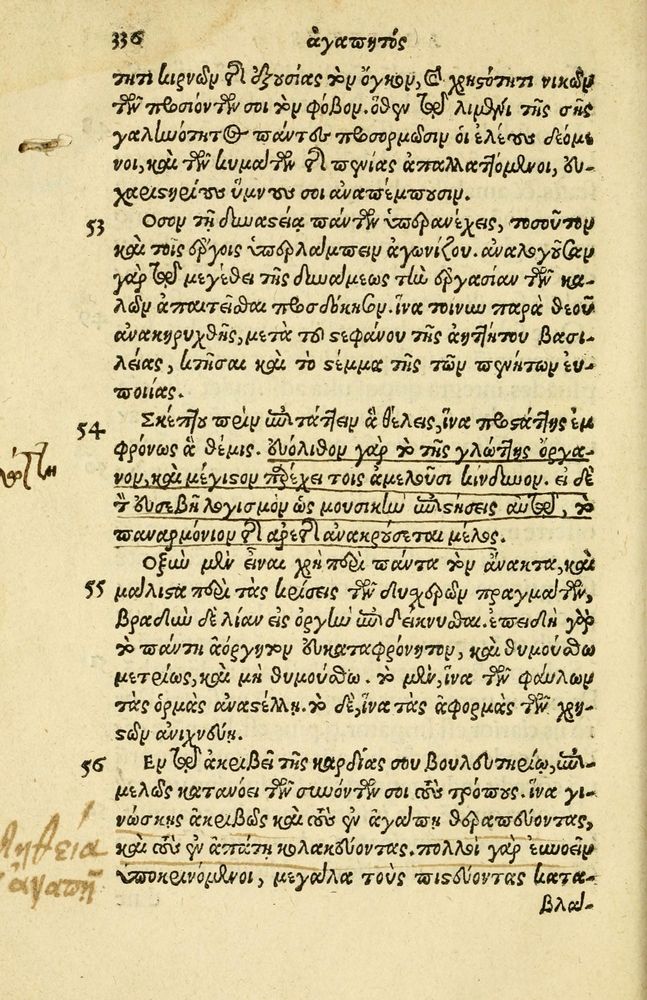 336 ἀγαπητός
τητι κιρνῶν τῆς ἐξουσίας τὸν ὄγκον, καὶ χρηστότητι νικῶν
τῶν προσιόντων σοι τὸν φόβον. ὅθεν τῷ λιμένι τῆς σῆς
γαληνότητος πάντες προσορμῶσιν οἱ ἐλέους δεόμε
νοι, καὶ τῶν κυμάτων τῆς πενίας ἀπαλλαττόμενοι, εὐ-
χαριστηρίους ὕμνους σοι ἀναπέμπουσιν.
53 Ὅσον τῇ δυναστείᾳ πάντων ὑπερανέχεις, τοσοῦτον
καὶ τοῖς ἔργοις ὑπερλάμπειν ἀγωνίζου. ἀναλογοῦσαν
γὰρ τῷ μεγέθει τῆς δυνάμεως τὴν ἐργασίαν τῶν κα-
λῶν ἀπαιτεῖσθαι προσδόκησον. ἵνα τοίνυν παρὰ θεοῦ
ἀνακηρυχθῇς, μετὰ τοῦ στεφάνου τῆς ἀηττήτου βασι-
λείας, κτῆσαι καὶ τὸ στέμμα τῆς τῶν πενήτων εὐ-
ποιίας.
54 Σκέπτου πρὶν ἐπιτάττειν ἃ θέλεις, ἵνα προστάττῃς ἐμ
φρόνως ἃ θέμις. εὐόλισθον γὰρ τὸ τῆς γλώττης ὄργα-
νον, καὶ μέγιστον παρέχει τοῖς ἀμελοῦσι κίνδυνον. εἰ δὲ
τὸν εὐσεβῆ λογισμὸν ὡς μουσικὸν ἐπιστήσεις αὐτῷ, τὸ
παναρμόνιον τῆς ἀρετῆς ἀνακρούσεται μέλος.
55 Ὀξὺν μὲν εἶναι χρὴ περὶ πάντα τὸν ἄνακτα, καὶ
μάλιστα περὶ τὰς κρίσεις τῶν δυσχερῶν πραγμάτων,
βραδὺν δὲ λίαν εἰς ὀργὴν ἐπιδείκνυσθαι. ἐπειδὴ γὰρ
τὸ πάντη ἀόργητον εὐκαταφρόνητον, καὶ θυμούσθω
μετρίως, καὶ μὴ θυμούσθω. τὸ μὲν, ἵνα τῶν φαύλων
τὰς ὁρμὰς ἀναστέλλῃ. τὸ δὲ, ἵνα τὰς ἀφορμὰς τῶν χρη-
στῶν ἀνιχνεύῃ.
56 Ἐν τῷ ἀκριβεῖ τῆς καρδίας σου βουλευτηρίῳ, ἐπι-
μελῶς κατανόει τῶν συνόντων σοι τοὺς τρόπους. ἵνα γι-
νώσκῃς ἀκριβῶς καὶ τοὺς ἐν ἀγάπῃ θεραπεύοντας,
καὶ τοὺς ἐν ἀπάτῃ κολακεύοντας. πολλοὶ γὰρ εὐνοεῖν
ὑποκρινόμενοι, μεγάλα τοὺς πιστεύοντας κατα-
βλά-
ἀγάπῃ